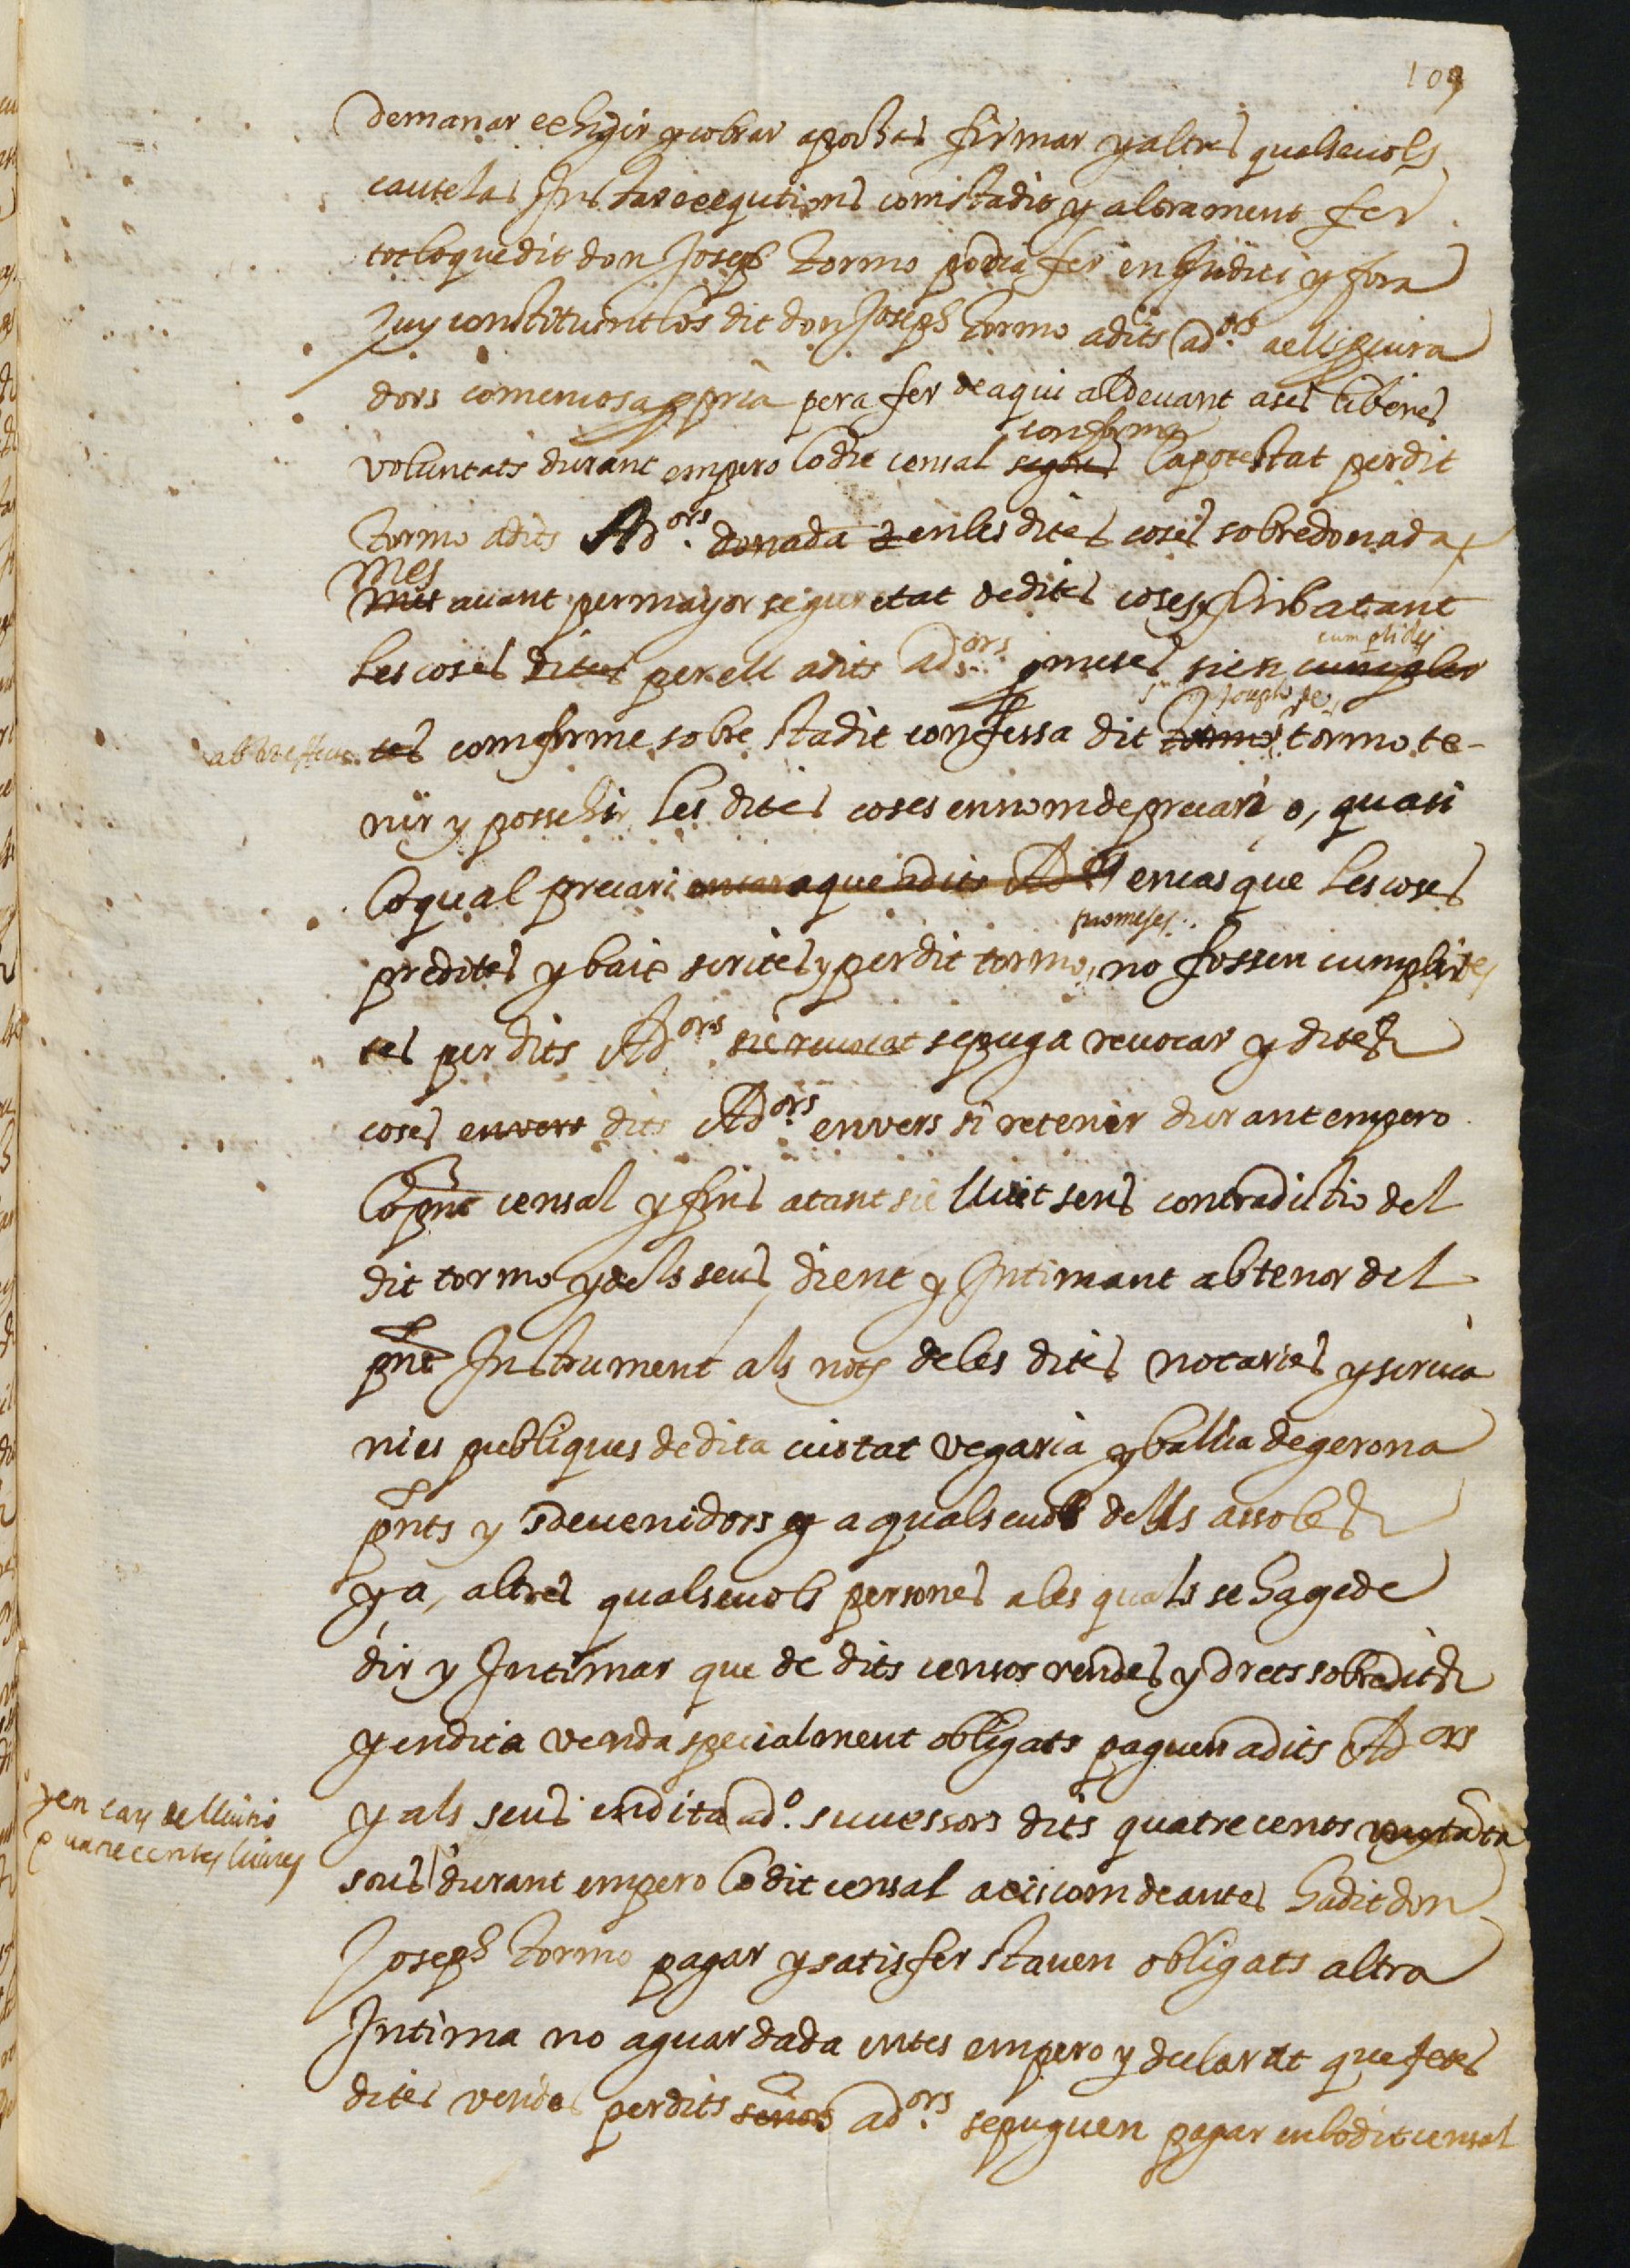 109
demanar eehigir y cobrar apochas firmar y altres qualseuols
cautelas Instar eeequtions com stadit y altrament fer
tot lo que dit don Joseph Tormo podia fer en Judici y fora
Juy constituintlos dit don Joseph Tormo a dits ad.ors aells procura
dors com en cosa ppria pera fer de aqui al deuant a ses liberes
conforme
voluntats durant empero lo dit censal segons la potestat per dit
Tormo a dits Ad.ors donada en les dites coses sobredonada
mes
mes auant per mayor seguretat de dites coses fins a tant
cumplides
les coses dites per ell a dits ad.ors pmeses sien cumpler
Joseph de
ab tot effecte tes comforme sobre stadit confessa dit Tormo tormo te-
nir y possehir les dites coses en nom de precari o, quasi
lo qual precari encaraque a dits Ad.ors en cas que les coses
promeses
predites y baix scrites y per dit tormo, no fossen cumplides
tes per dits Ad.ors sie reuocat se puga reuocar y dites
coses envers dits Ad.ors envers si retenir durant empero
lo pnt censal y fins atant sie lluit sens contradictio del
dit tormo y dels seus dient y Intimant ab tenor del
pnt Instrument als nots de les dites notaries y scriua
nies publiques de dita ciutat vegaria y ballia de gerona
pnts y sdeuenidors y a qualseuols dells assoles
y a, altres qualseuols persones ales quals se hage de
dir y Intimar que de dits censos rendes y drets sobredits
y en dita venda specialment obligats paguen a dits Ad.ors
y als seus en dita ad.o successors dits quatrecents
y en cas de lluicio
quatrecentes liures
sous durant empero lo dit censal axi com de antes ha dit don
Joseph Tormo pagar y satisfer stauen obligats altra
Intima no aguardada entes empero y declarat que fetes
dites vendes per dits senors ad.ors se puguen pagar en lo dit censal